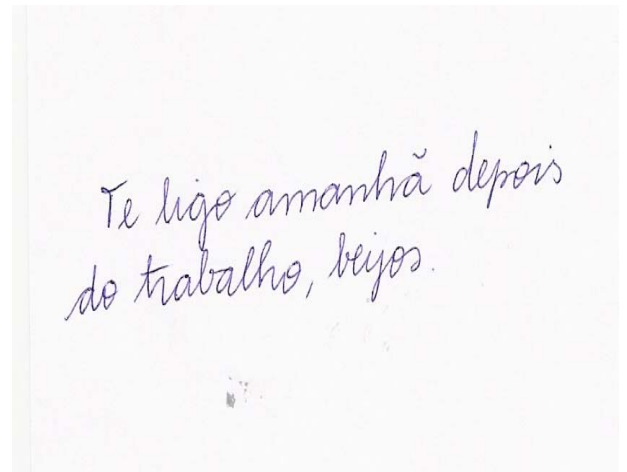 Te ligo amanhã depois
do trabalho, beijos.